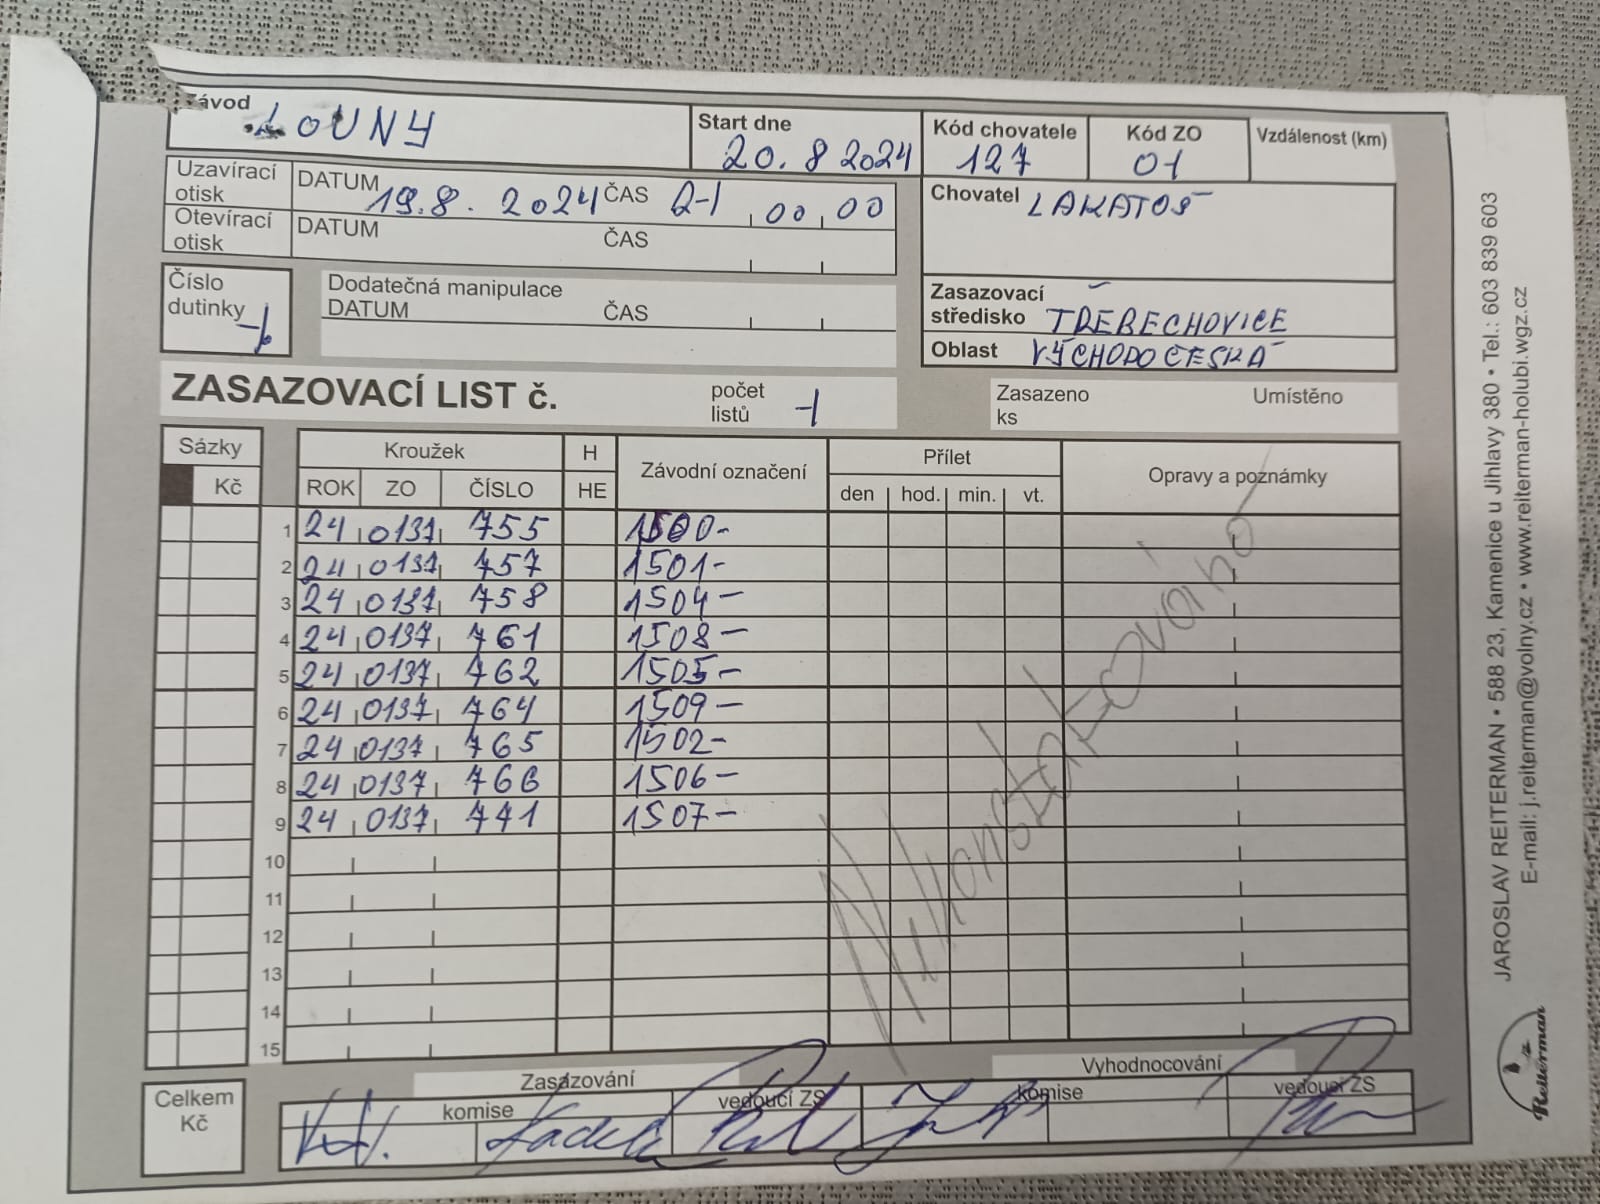 Závod LOUNY
Start dne 20. 8 2024
Kód chovatele 127
Kód ZO 01
Vzdálenost (km)
Uzavírací otisk DATUM 19.8. 2024 ČAS 21 00 00
Otevírací otisk DATUM ČAS
Chovatel LAKATOŠ
Číslo dutinky
Dodatečná manipulace
DATUM ČAS
Zasazovací středisko TŘEBECHOVICE
Oblast VÝCHODOČESKÁ
ZASAZOVACÍ LIST č. počet listů 1
Zasazeno ks Umístěno
Sázky Kroužek H Závodní označení Přílet Opravy a poznámky
Kč ROK ZO ČÍSLO HE den hod. min. vt.
1 24 0137 755 1500-
2 24 0137 757 1501-
3 24 0137 758 1504-
4 24 0137 761 1508-
5 24 0137 762 1505-
6 24 0137 764 1509-
7 24 0137 765 1502-
8 24 0137 766 1506-
9 24 0137 771 1507-
10
11
12
13
14
15
Celkem Kč
Zasazování Vyhodnocování
komise vedoucí ZS komise vedoucí ZS
JAROSLAV REITERMAN • 588 23, Kamenice u Jihlavy 380 • Tel.: 603 839 603
E-mail: j.reiterman@volny.cz • www.reiterman-holubi.wgz.cz
Reiterman